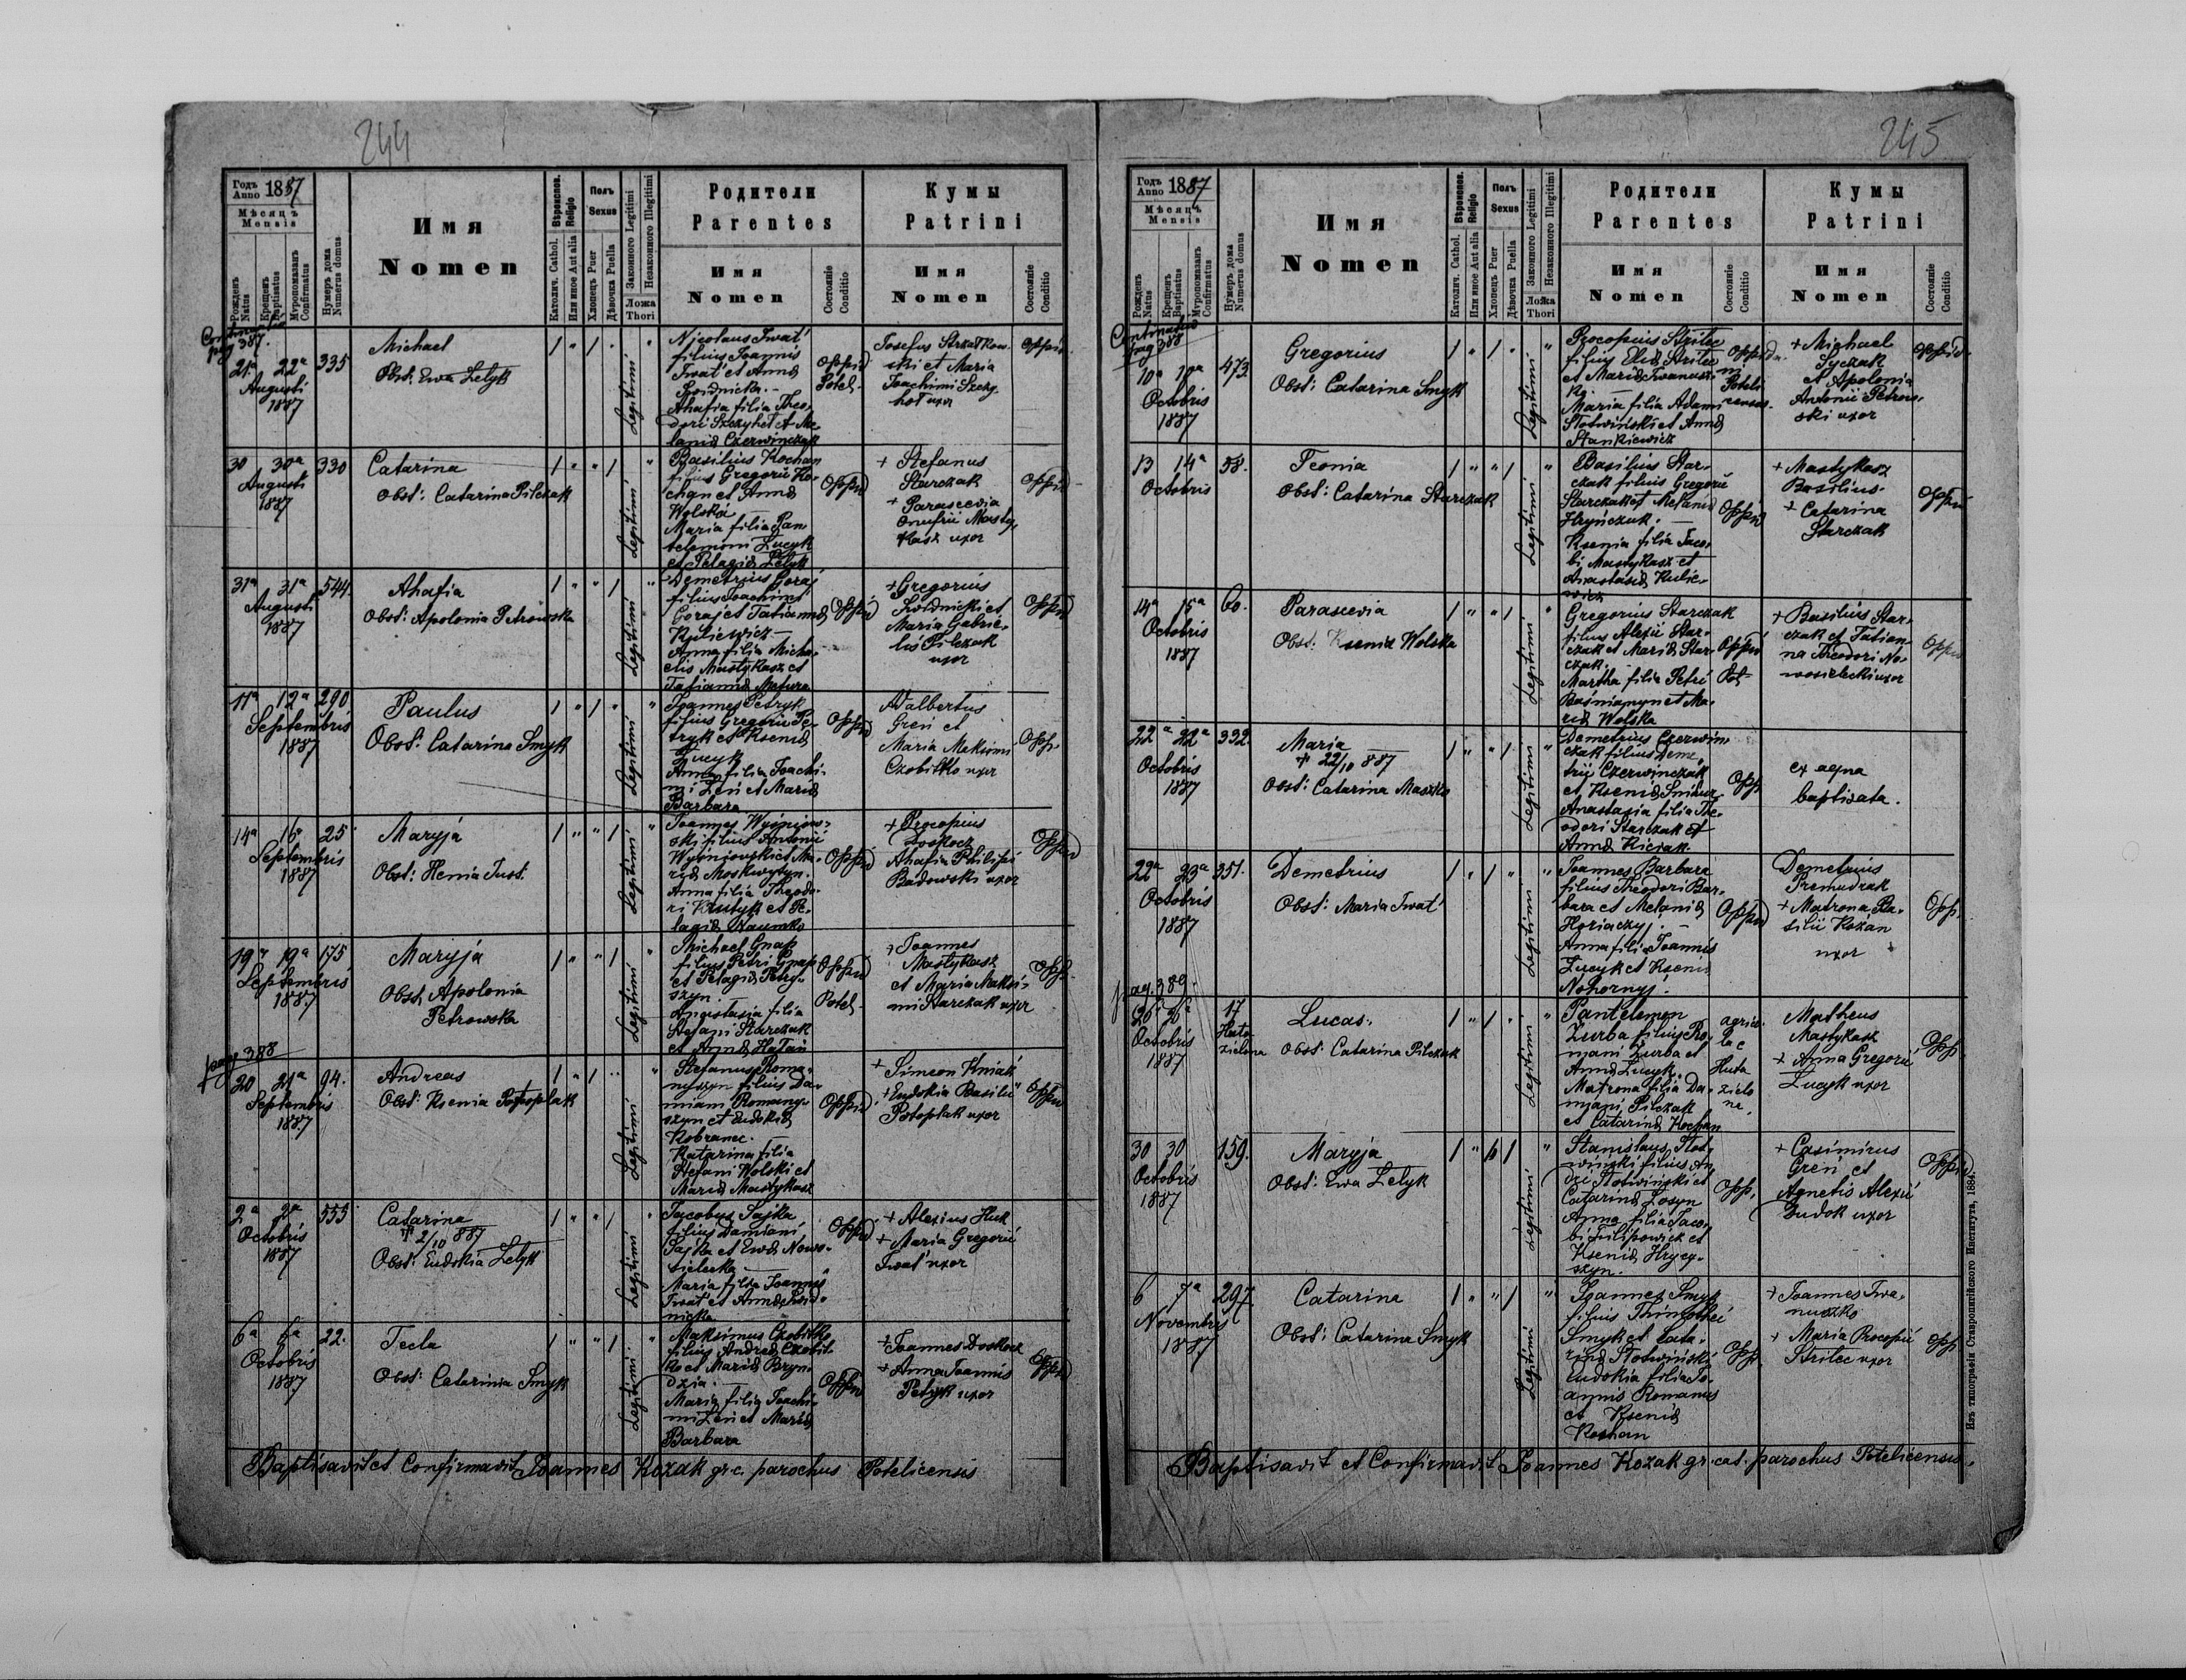 244
Годъ Anno 1887
Мѣсяцъ
Mensis
Рожденъ Natus
Крещенъ Baptisatus
Муропомазанъ Confirmatus
Нумеръ дома Numerus domus
Имя
Nomen
Вѣроисповѣд. Religio
Католич. Cathol.
Или иное Aut alia
Полъ
Sexus
Хлопецъ Puer
Дѣвочка Puella
Законного Legitimi
Незаконного Illegitimi
Ложа
Thori
Родители
Parentes
Имя
Nomen
Состояніе Conditio
Кумы
Patrini
Имя
Nomen
Состояніе Conditio
pag 387.
21 22ª Augusti 1887
335
Michael
Obst. Ewa Zelyk
Legitimi
Nicolaus Iwat'
filius Joannis
Iwat' et Anna
Ahafia filia Theo-
dori Szczyhet et Me-
lania Czerwinczak
Oppid Potel.
ski et Maria
Joachimi Szczy-
het uxor
Oppid
30 30ª Augusti 1887
330
Catarina
Obst: Catarina Pilczak
Legitimi
Basilius Kochan
filius Gregorii Ko-
chan et Anna
Wolska
Maria filia Pan-
telemoni Lucyk
et Pelagia Zelyk
Oppid
+ Stefanus
Starczak
+ Parascevia
Onufrii Masty-
kasz uxor
Oppid
31ª 31ª Augusti 1887
544.
Ahafia
Obst: Apolonia Petrowska
Legitimi
Demetrius Goraj
filius Joachimi
Goraj et Tatianna
Kuliewicz
Anna filia Micha-
elis Mastykasz et
Tatianna Matura
Oppid
+ Gregorius
Maria Gabrie-
lis Pilczak
uxor
Oppid
11ª 12ª Septembris 1887
290
Paulus
Obst: Catarina Smyk
Legitimi
Joannes Petryk
filius Gregorii Pe-
tryk et Ksenia
Lucyk
Anna filia Joachi-
mi Zen et Maria
Barbara
Oppid
Adalbertus
Gren et
Maria Maksimi
Czobitko uxor
Opp.
14ª 15ª Septembris 1887
25
Maryja
Obst: Henia Just.
Legitimi
Joannes Wysniow-
ski filius Antonii
Wysniowski et Ma-
ria Moskwytyn.
Anna filia Theodo-
ri Krutyk et Pe-
lagia Naumko
Oppid
+ Procopius
Doskocz
Ahafia Philipi
Badowski uxor
Oppid
19ª 19ª Septembris 1887
175
Maryja
Obst. Apolonia
Petrowska
Legitimi
Michael Gnap
filius Petri Gnap
et Pelagia Petry-
szyn.
Anastasia filia
Stefani Starczak
et Anna Hatan
Oppid Potel.
+ Joannes
Mastykasz
et Maria Maksi-
mi Starczak uxor
Opp.
pag 388
20 21ª Septembris 1887
94.
Andreas
Obst: Ksenia Potoplak
Legitimi
Stefanus Roma-
nyszyn filius Da-
miani Romany-
szyn et Eudokia
Kobranec.
Katarina filia
Stefani Wolski et
Maria Mastykasz
Oppid
+ Simeon Kniak
+ Eudokia Basilii
Potoplak uxor
Oppid
2ª 2ª Octobris 1887
555
Catarina
+ 2/10 887
Obst: Eudokia Zelyk
Legitimi
Jacobus Sajka
filius Damiani
Sajka et Ewa Nowo-
sielecka
Maria filia Joannis
Iwat' et Anna
Oppid
+ Alexius Huk
+ Maria Gregorii
Iwat' uxor
6ª 6ª Octobris 1887
22.
Tecla
Obst: Catarina Smyk
Legitimi
Maksimus Czobitko
filius Andrea Czobit-
ko et Maria Bryn-
dzia.
Maria filia Joachi-
mi Zen et Maria
Barbara
Oppid
+ Joannes Doskocz
+ Anna Joannis
Petryk uxor
Oppid
Baptisavit et Confirmavit Joannes Kozak gr.c. parochus Potelicensis
245
Годъ Anno 1887
Мѣсяцъ
Mensis
Рожденъ Natus
Крещенъ Baptisatus
Муропомазанъ Confirmatus
Нумеръ дома Numerus domus
Имя
Nomen
Вѣроисповѣд. Religio
Католич. Cathol.
Или иное Aut alia
Полъ
Sexus
Хлопецъ Puer
Дѣвочка Puella
Законного Legitimi
Незаконного Illegitimi
Ложа
Thori
Родители
Parentes
Имя
Nomen
Состояніе Conditio
Кумы
Patrini
Имя
Nomen
Состояніе Conditio
pag 388
10ª 10ª Octobris 1887
473
Gregorius
Obst: Catarina Smyk
Legitimi
Procopius Strilec
filius Elia Strilec
et Maria Iwanusz-
ki
Maria filia Adami
Stotwiński et Anna
Stankiewicz
Oppida-
ni
Poteli
censes.
+ Michael
Syczak
et Apolonia
Antonii Petrow-
ski uxor
Oppid
13 14ª Octobris
58.
Teonia
Obst: Catarina Starczak
Legitimi
Basilius Star-
czak filius Gregorii
Starczak et Melania
Hryńczuk.
Ksenia filia Jaco-
bi Mastykasz et
Anastasia Kulie-
wicz
Oppid
+ Mastykasz
Basilius
+ Catarina
Starczak
Oppid
14ª 15ª Octobris 1887
60.
Parascevia
Obst: Ksenia Wolska
Legitimi
Gregorius Starczak
filius Alexii Star-
czak et Maria Star-
czak.
Martha filia Petri
et Ma-
ria Wolska
Oppid
Pot
+ Basilius Star-
czak et Tatian-
na Theodori No-
wosielecki uxor
Oppid
22ª 22ª Octobris 1887
332.
Maria
+ 22/10 887
Obst: Catarina Maszko
Legitimi
Demetrius Czerwin-
czak filius Deme-
trii Czerwinczak
et Ksenia
Anastasia filia The-
odori Starczak et
Anna Kiciak
Opp
ex aqua
baptisata.
22ª 23ª Octobris 1887
351.
Demetrius
Obst: Maria Iwat'
Legitimi
Joannes Barbara
filius Theodori Bar-
bara et Melania
Horiaczyj.
Anna filia Joannis
Lucyk et Ksenia
Nohornyj.
Oppid
Demetrius
Premudrak
+ Matrona Ba-
silii Kozan
uxor
Opp.
pag. 389.
26ª Octobris 1887
17
Huta
zielona
Lucas.
Obst: Catarina Pilczak
Legitimi
Pantelemon
Zurba filius Ro-
mani Zurba et
Anna Lucyk.
Matrona filia Da-
miani Pilczak
et Catarina Kochan
agrico-
lae
Huta
zielo
na.
Matheus
Mastykasz
+ Anna Gregorii
Lucyk uxor
Opp
30 30 Octobris 1887
159.
Maryja
Obst: Ewa Zelyk
Legitimi
Stanislaus Stot-
wiński filius An-
Stotwiński et
Catarina Losyn
Anna filia Jaco-
bi Filipowicz et
Ksenia Hrycy-
szyn.
Opp.
+ Casimirus
Gren et
Agnetis Alexii
Dudok uxor
Oppid
6 7ª Novembris 1887
297
Catarina
Obst: Catarina Smyk
Legitimi
Joannes Smyk
filius Thimothei
Smyk et Cata-
rina Stotwińska
Eudokia filia Jo-
annis Romanus
et Ksenia
Kochan
Opp
+ Joannes Iwa-
nuszko
+ Maria Procopii
Strilec uxor
opp
Baptisavit et Confirmavit Joannes Kozak gr.cat. parochus Potelicensis.
Изъ типографіи Ставропигійского Института, 1884.